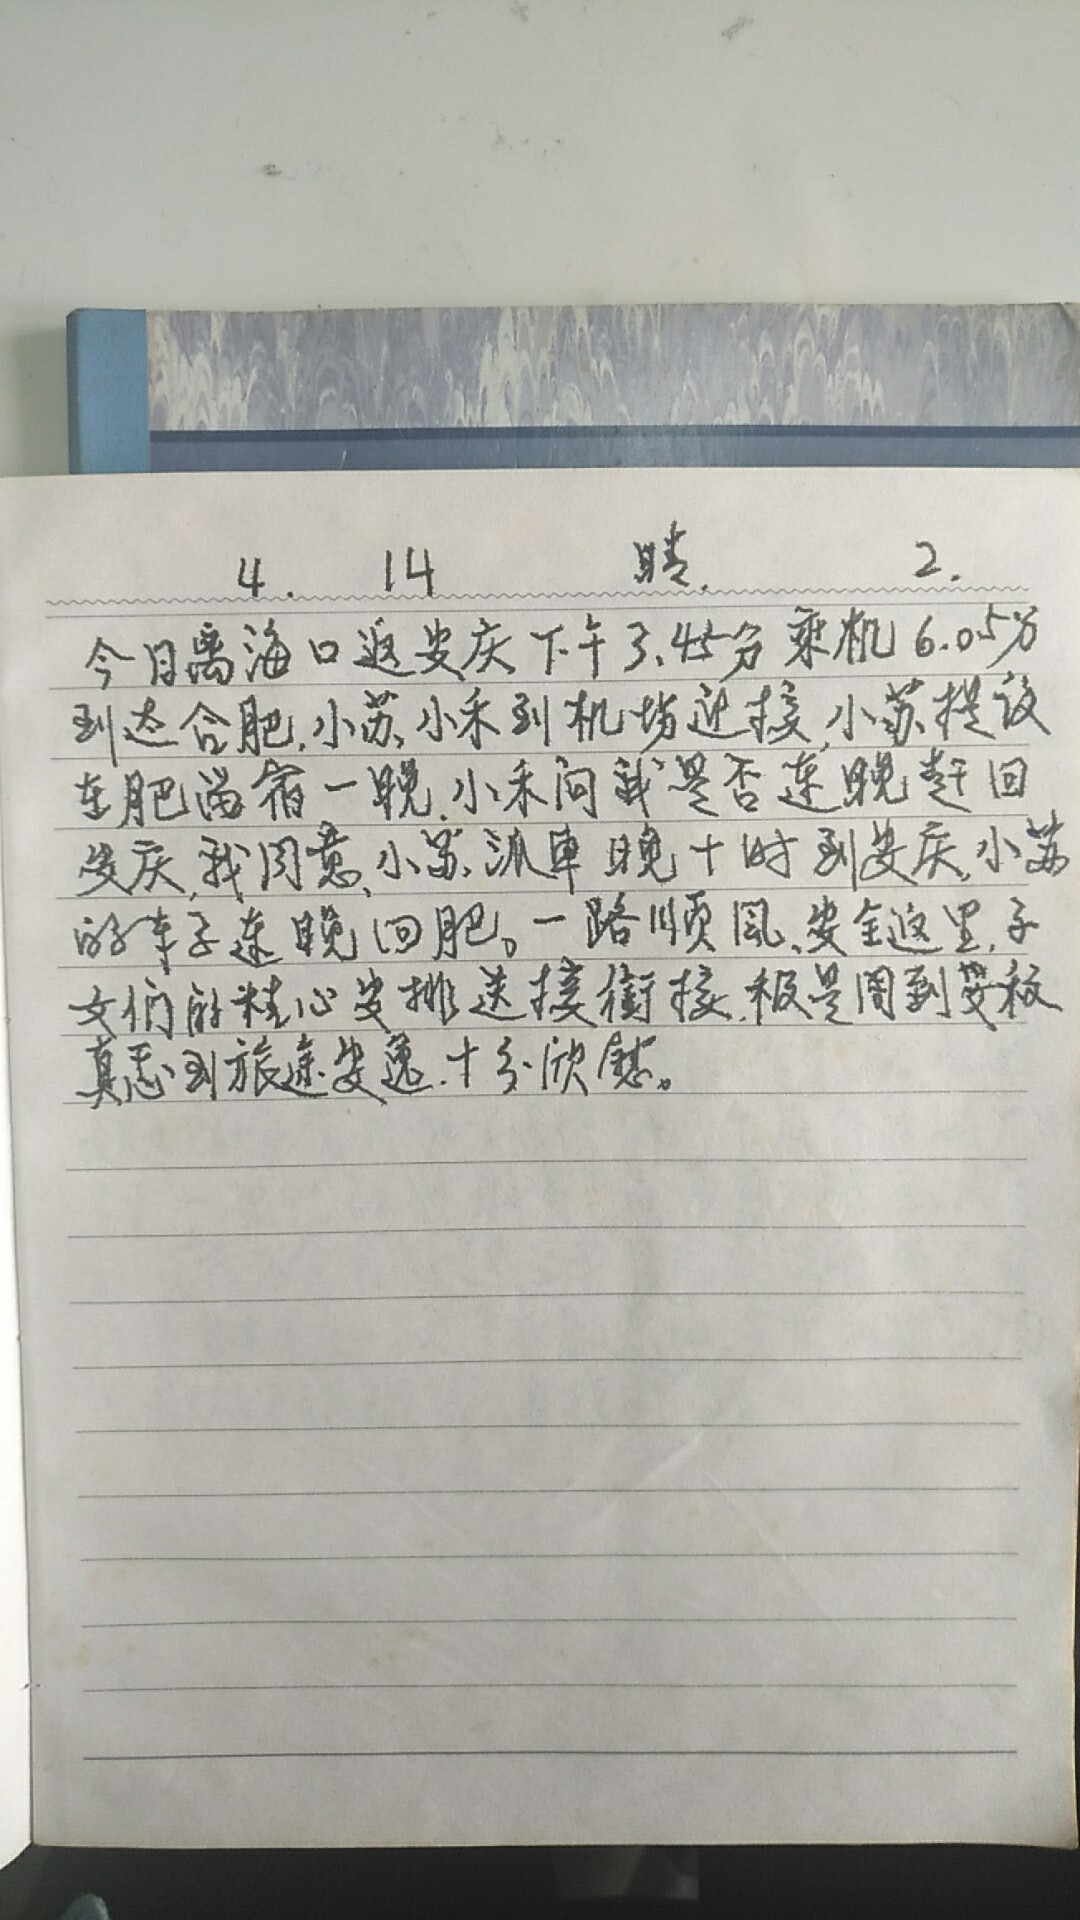 4. 14 晴. 2.
今日离海口返安庆下午3.45分乘机6.05分
到达合肥,小苏,小禾到机场迎接,小苏提议
在肥留宿一晚,小禾问我是否连晚赶回
安庆,我同意,小苏派車晚十时到安庆,小苏
的车子连晚回肥。一路顺风,安全这里,子
女们的精心安排送接衔接,极是周到
真忐到旅途安逸,十分欣慰。